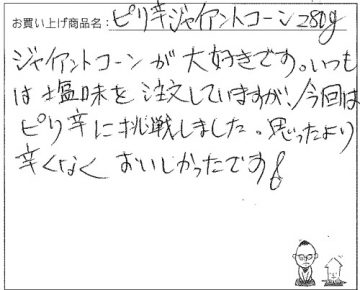 お買い上げ商品名：ピリ辛ジャイアントコーン280g
ジャイアントコーンが大好きです。いつも
は塩味を注文していますが、今回は
ピリ辛に挑戦しました。思ったより
辛くなくおいしかったです!